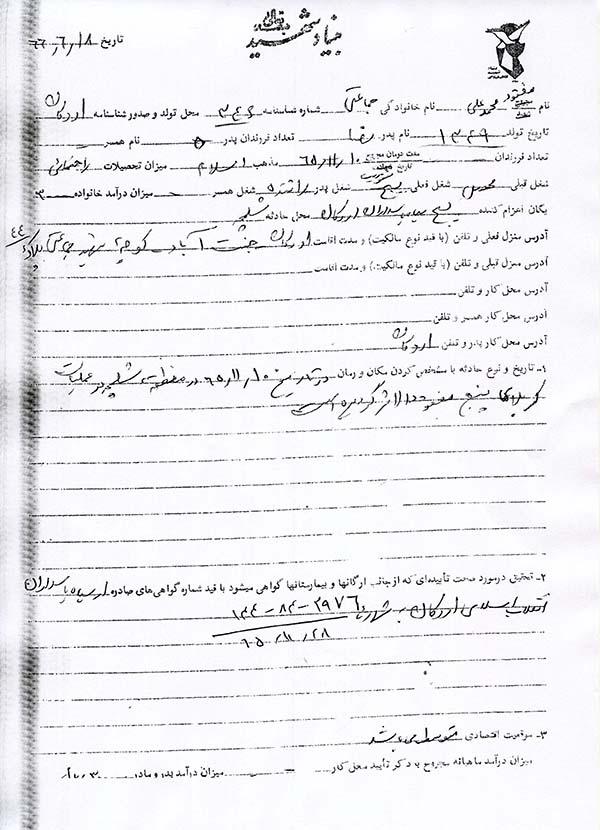 بسمه تعالی
بنیاد شهید
تاریخ ۶۶/۶/۱۸
نام محمد علی نام خانوادگی شماره شناسنامه محل تولد و صدور شناسنامه اردکان
مفقود
تاریخ تولد نام پدر رضا تعداد فرزندان پدر ۵ نام همسر -
تعداد فرزندان ۶۵/۱۰/۱۰ مذهب اسلام میزان تحصیلات راهنمائی
شغل قبلی محصل شغل فعلی بسیج شغل پدر راننده شغل همسر - میزان درآمد خانواده
یگان اعزام کننده بسیج سپاه پاسداران اردکان محل حادثه شلمچه
آدرس منزل فعلی و تلفن (با قید نوع مالکیت) و مدت اقامت اردکان جنت آباد کوچه شهید پلاک ۴۴
آدرس منزل قبلی و تلفن (با قید نوع مالکیت) و مدت اقامت
آدرس محل کار و تلفن
آدرس محل کار همسر و تلفن
آدرس محل کار پدر و تلفن اردکان
۱- تاریخ و نوع حادثه با مشخص کردن مکان و زمان در تاریخ در منطقه شلمچه در عملیات
کربلای پنج مفقودالاثر گردیده است
۲- تحقیق درمورد صحت تأییدهای که از جانب ارگانها و بیمارستانها گواهی میشود با قید شماره گواهی‌های صادره از سپاه پاسداران
انقلاب اسلامی اردکان به شماره ۲۹۷۶-۸۲-۱۳۴
۶۵/۱۱/۲۸
۳- موقعیت اقتصادی متوسط می‌باشد
میزان درآمد ماهانه مجروح با ذکر تأیید محل کار - میزان درآمد پدر و مادر